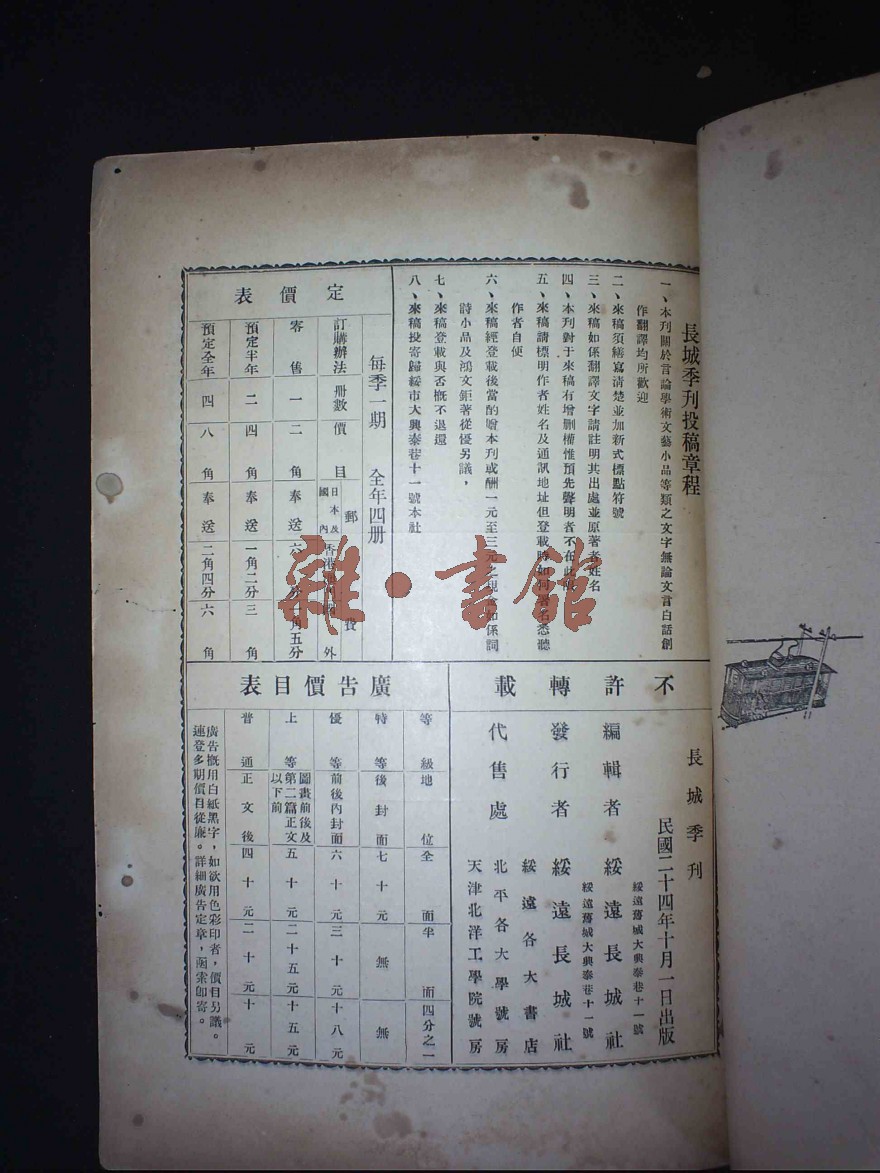 長城季刊投稿章程
一、本刊關於言論學術文藝小品等類之文字無論文言白話創
作翻譯均所歡迎
二、來稿須繕寫清楚並加新式標點符號
三、來稿如係翻譯文字請註明其出處並原著者姓名
四、本刊對于來稿有增删權惟預先聲明者不在此
五、來稿請標明作者姓名及通訊地址但登載時如何署名悉聽
作者自便
六、來稿經登載後當酌贈本刊或酬一元至三元之現金如係詞
詩小品及鴻文鉅著從優另議，
七、來稿登載與否概不退還
八、來稿投寄歸綏市大興泰巷十一號本社
每季一期 全年四册
定價表
訂購辦法 册數 價目 郵費
國內 日本及 香港 國外
零售 一 二角 奉送 六分 角五分
預定半年 二 四角 奉送 一角二分 三角
預定全年 四 八角 奉送 二角四分 六角
不許轉載
長城季刊
民國二十四年十月一日出版
編輯者 綏遠長城社
綏遠舊城大興泰巷十一號
發行者 綏遠長城社
綏遠舊城大興泰巷十一號
代售處
綏遠各大書店
北平各大學號房
天津北洋工學院號房
廣告價目表
等級 地位 全面 半面 四分之一
特等 後封面 七十元 無 無
優等 前後內封面 六十元 三十元 十八元
上等 圖畫前後及第二篇正文以下前 五十元 二十五元 十五元
普通 正文後 四十元 二十元 十元
廣告概用白紙黑字，如欲用色彩印者，價目另議。
連登多期價目從廉。詳細廣告定章，函索即寄。
雜·書館